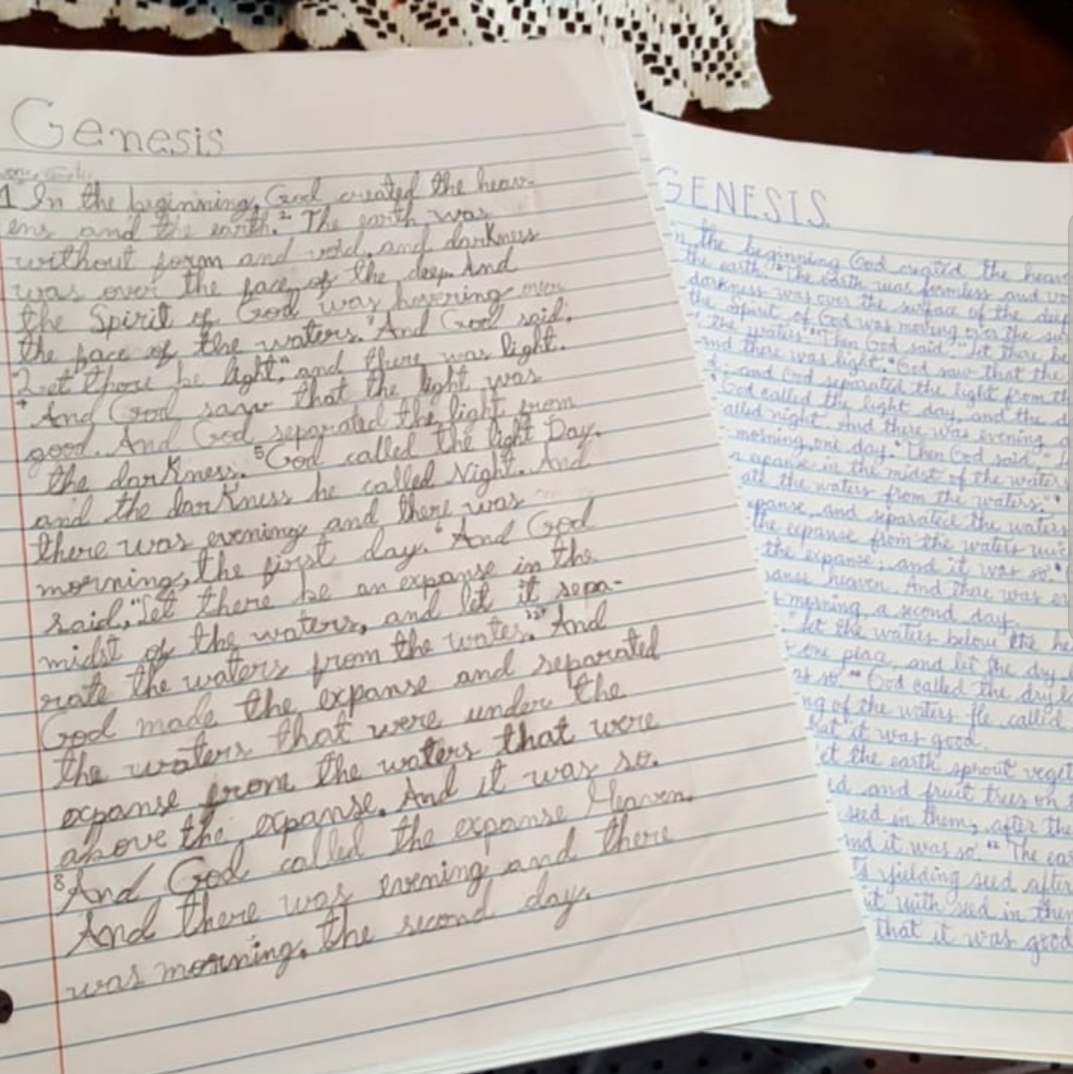 Genesis
1 In the beginning, God created the heav-
ens and the earth. 2 The earth was
without form and void, and darkness
was over the face of the deep. And
the Spirit of God was hovering over
the face of the waters. 3 And God said,
"Let there be light," and there was light.
4 And God saw that the light was
good. And God separated the light from
the darkness. 5 God called the light Day,
and the darkness he called Night. And
there was evening and there was
morning, the first day. 6 And God
said, "Let there be an expanse in the
midst of the waters, and let it sepa-
rate the waters from the water." And
God made the expanse and separated
the waters that were under the
expanse from the waters that were
above the expanse. And it was so.
8 And God called the expanse Heaven.
And there was evening and there
was morning, the second day.
GENESIS
the beginning God created the
the earth. The earth was formless and
darkness was over the surface of the
the Spirit of God was moving over the
the waters. Then God said, "Let there be
and there was light. God saw that the
and God separated the light from
God called the light day, and the
night. And there was evening
morning, one day. Then God said,
in the midst of the waters
the waters from the waters."
and separated the waters
the expanse from the waters
the expanse; and it was so.
heaven. And there was
morning a second day.
"Let the waters below the
one place, and let the dry
so. God called the dry
of the waters He called
it was good.
the earth sprout
and fruit trees on
seed in them, after
and it was so. The
yielding seed after
with seed in
that it was good